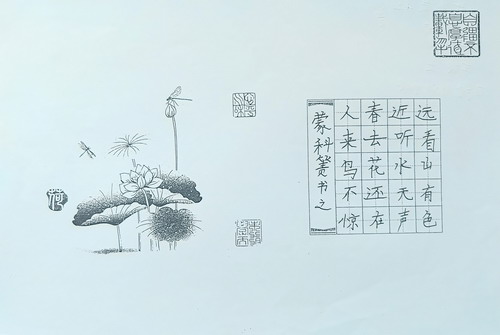 远看山有色
近听水无声
春去花还在
人来鸟不惊
蒙科书之